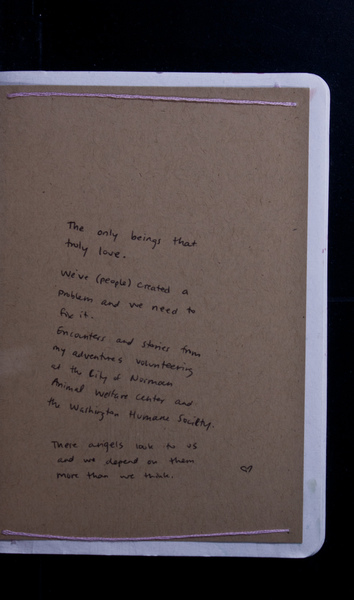 The only beings that
truly love.
We've (people) created a
problem and we need to
fix it.
Encounters and stories from
my adventures volunteering
at the City of Norman
Animal Welfare Center and
the Washington Humane Society.
These angels look to us
and we depend on them
more than we think.